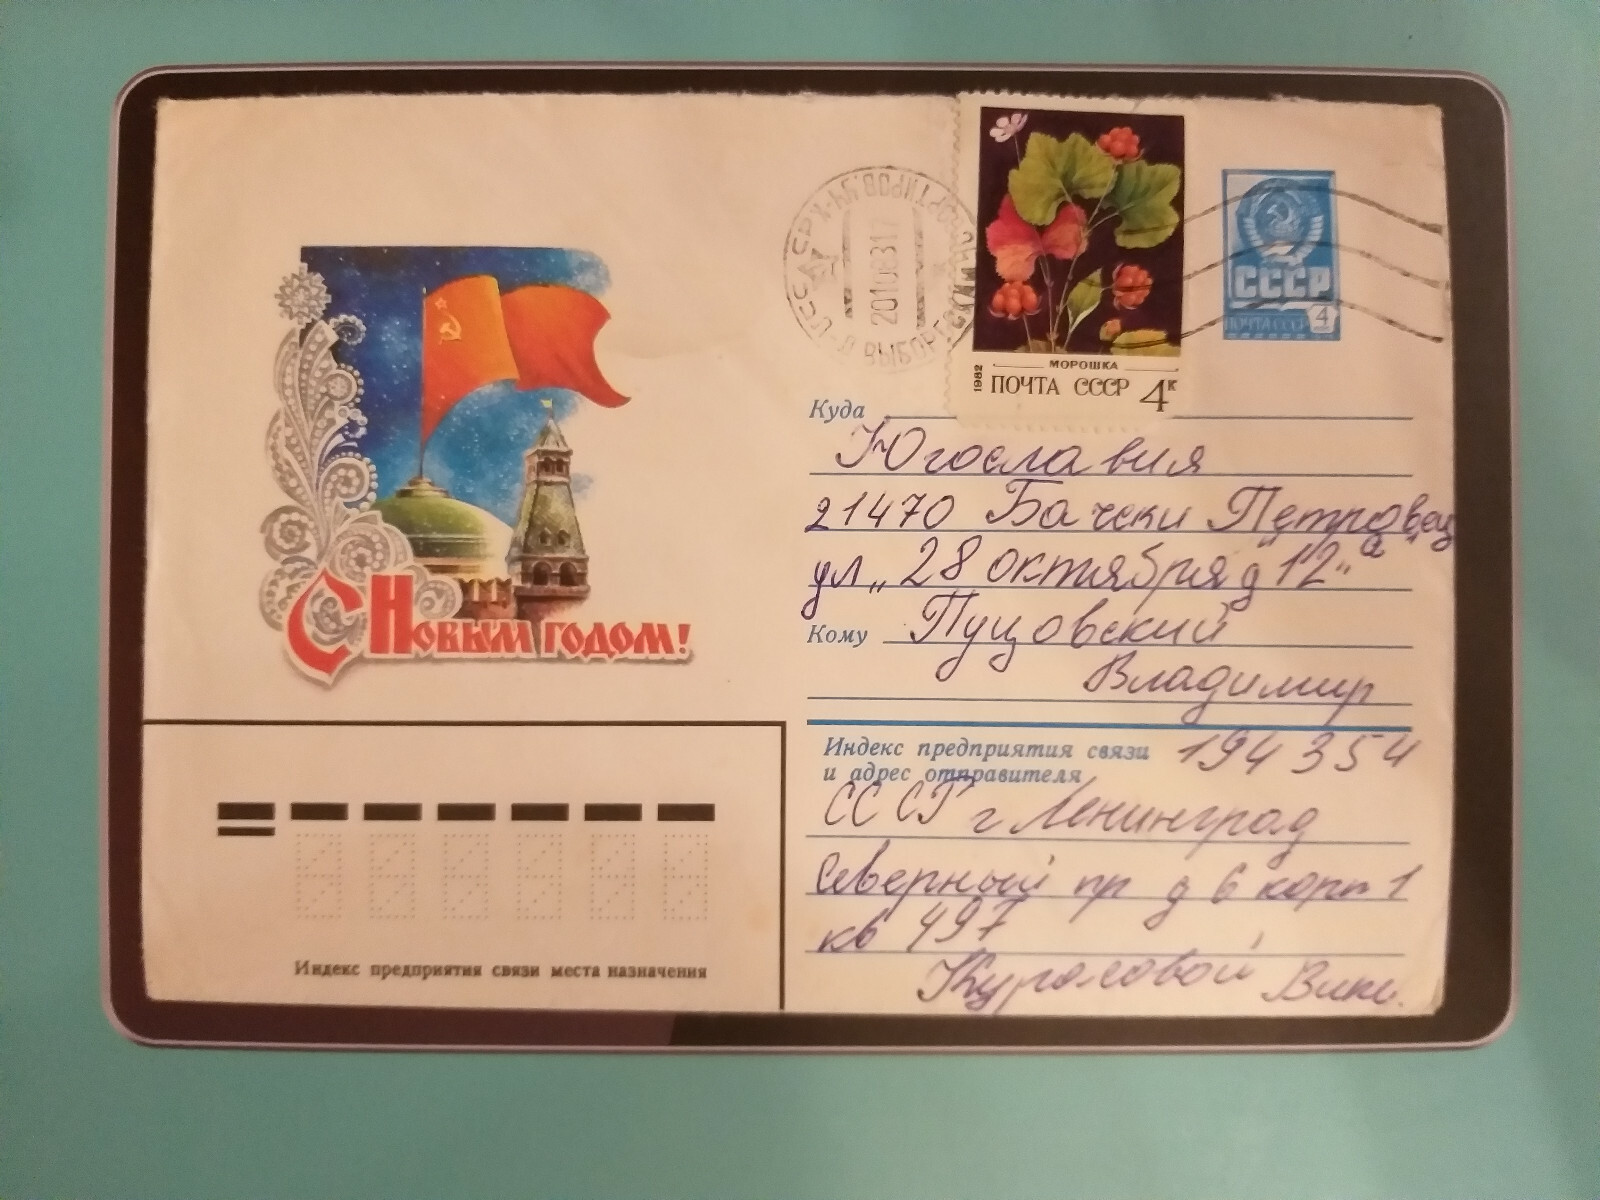 С Новым годом!
МОРОШКА
1982 ПОЧТА СССР 4к
СССР
ПОЧТА СССР 4
Куда
Югославия
21470 Бачски Петровец
ул „28 октября д 12а"
Кому Пуцовский
Владимир
Индекс предприятия связи 194354
и адрес отправителя
СССР г Ленинград
Северный пр д 6 корп 1
кв 497
Индекс предприятия связи места назначения